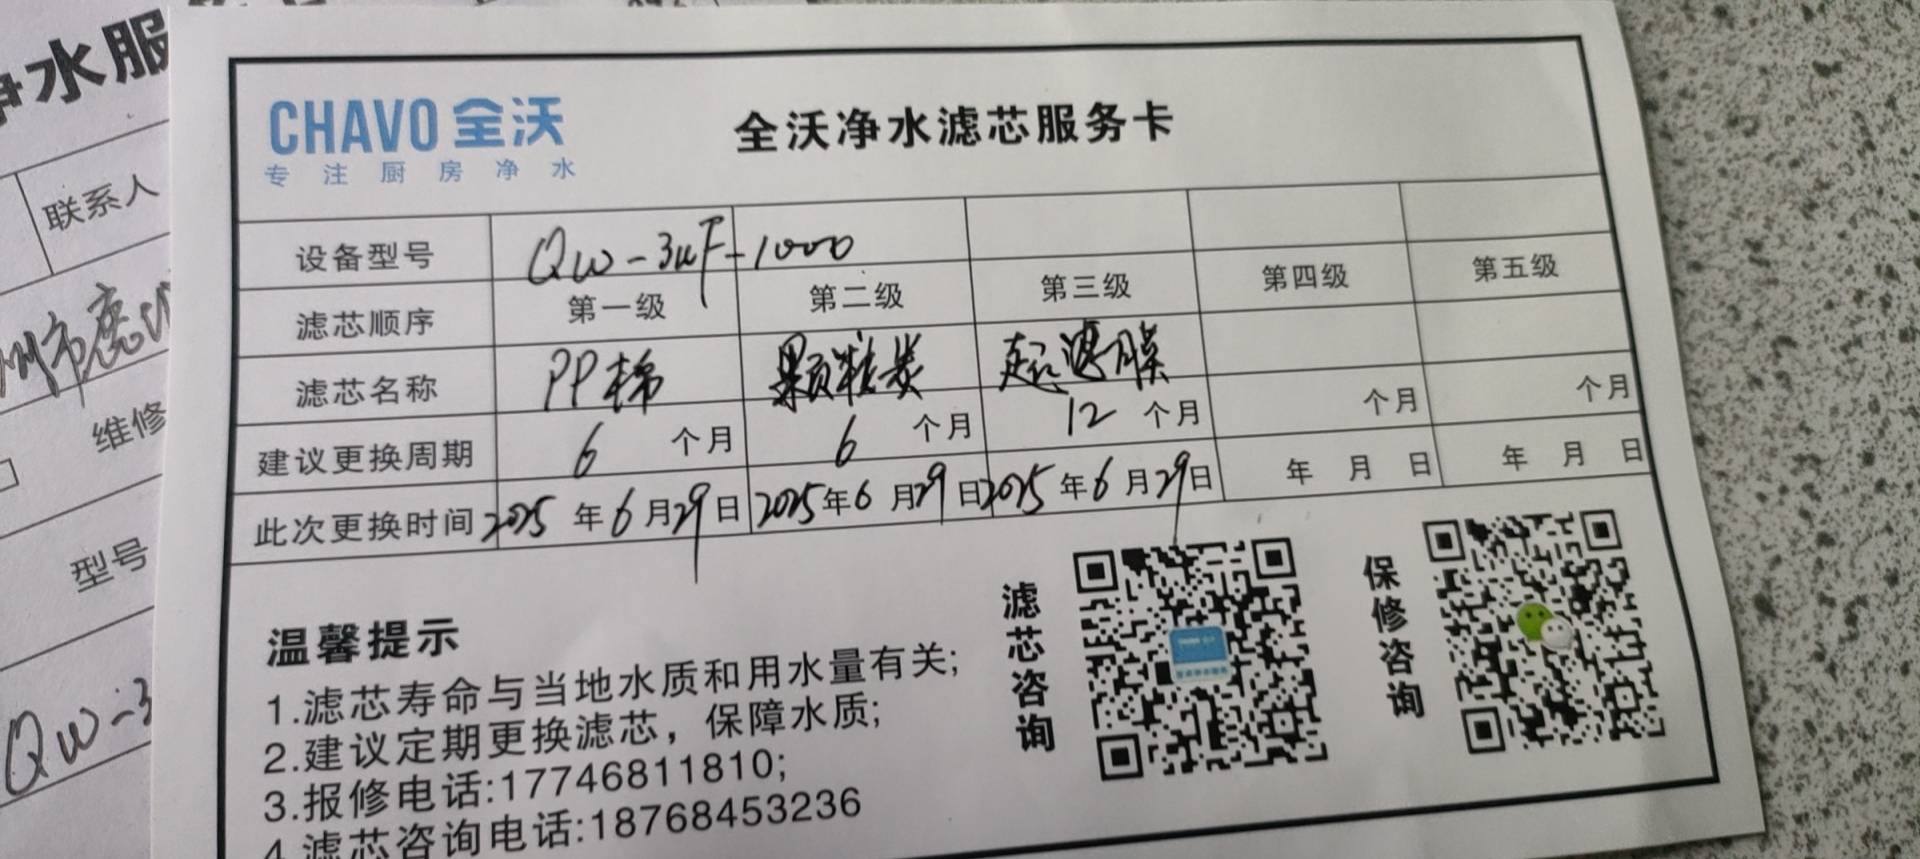 净水服
联系人
州市鹿城
维修
型号
QW-3
CHAVO 全沃
专注厨房净水
全沃净水滤芯服务卡
设备型号 QW-3UF-1000
滤芯顺序 第一级 第二级 第三级 第四级 第五级
滤芯名称 PP棉 颗粒炭 超滤膜
建议更换周期 6 个月 6 个月 12 个月 个月 个月
此次更换时间 2025 年 6 月 29 日 2025 年 6 月 29 日 2025 年 6 月 29 日 年 月 日 年 月 日
温馨提示
1.滤芯寿命与当地水质和用水量有关;
2.建议定期更换滤芯，保障水质;
3.报修电话:17746811810;
4.滤芯咨询电话:18768453236
滤芯咨询
保修咨询